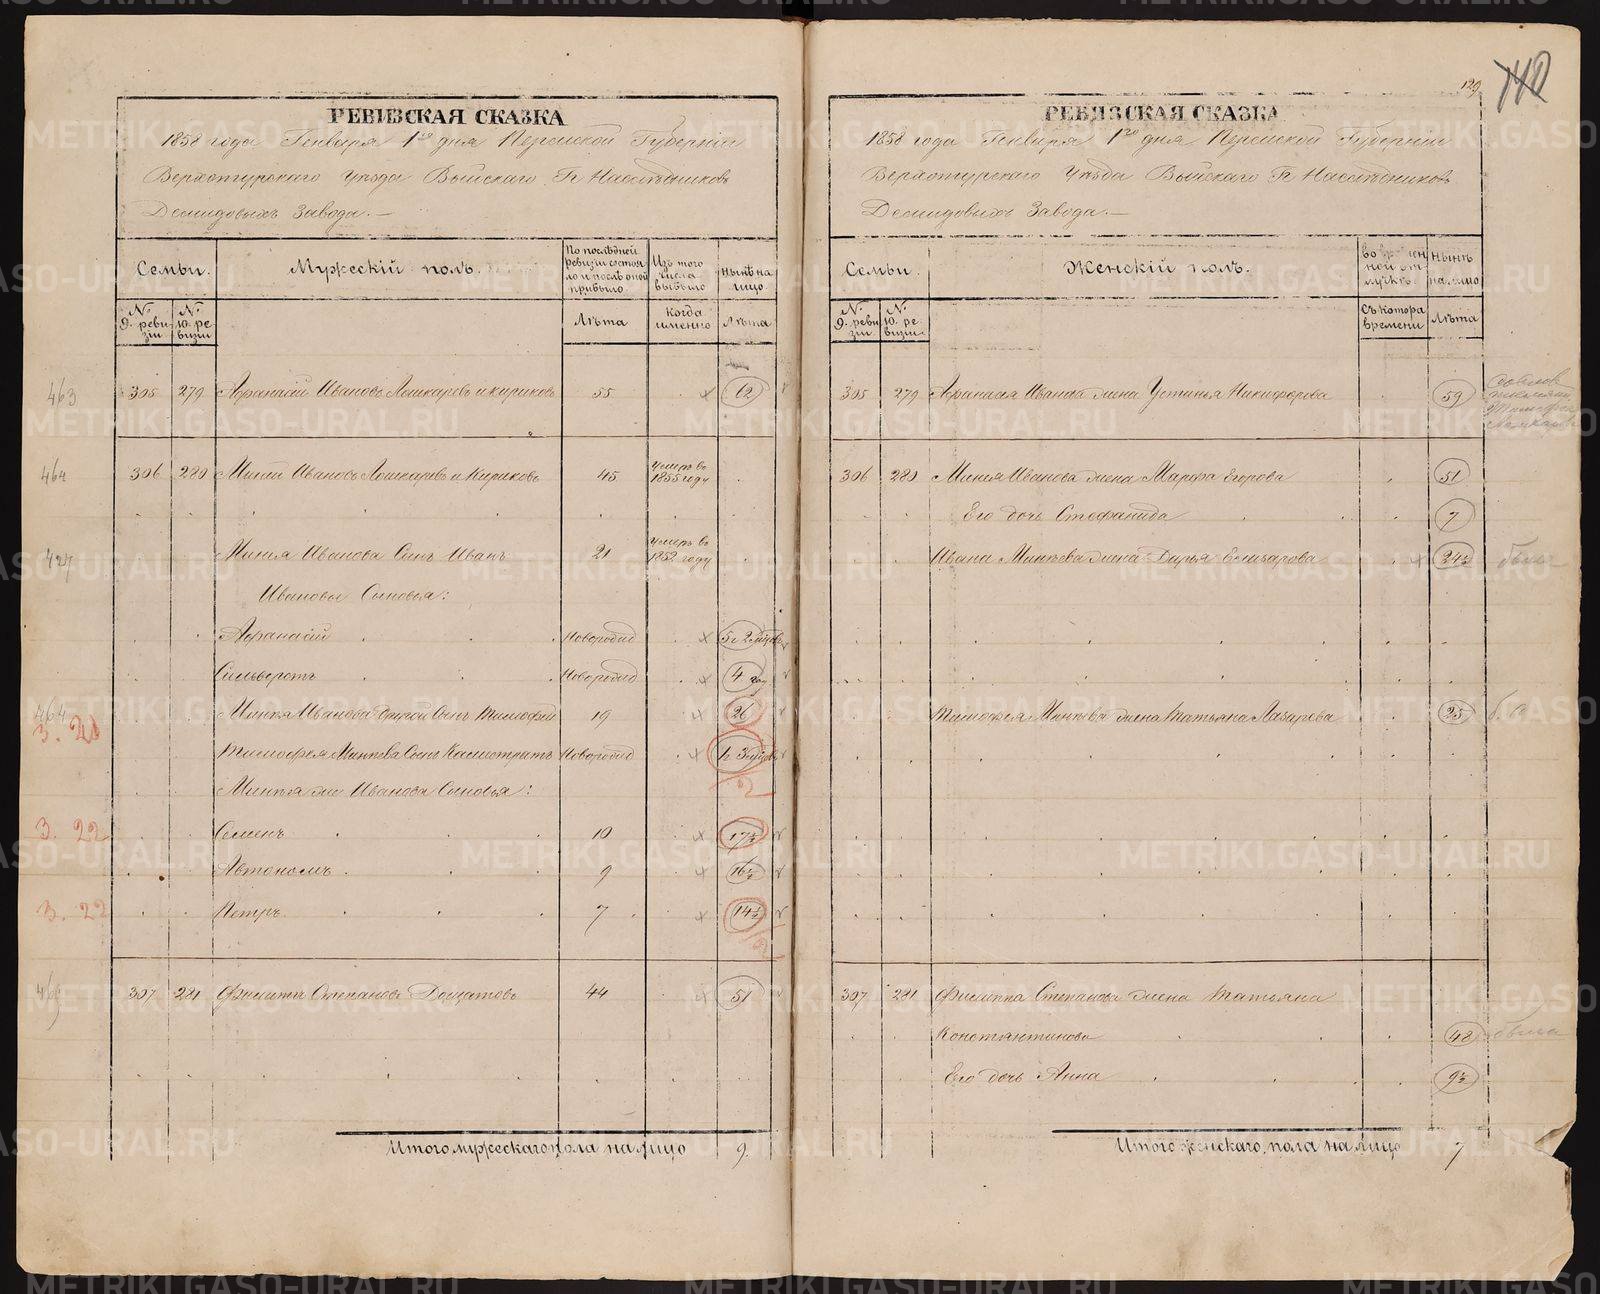 РЕВИЗСКАЯ СКАЗКА
1858 года Генваря 1го дня Пермской Губерніи
Верхотурскаго Уѣзда Выйскаго Гг Наслѣдниковъ
Демидовыхъ Завода.—
Семьи.
Мужескій полъ.
По послѣдней ревизіи состояло и послѣ оной прибыло.
Изъ того числа выбыло
Нынѣ на лицо.
№ 9. ревизіи
№ 10. ревизіи
Лѣта
когда именно
Лѣта
463 305 279 Афанасій Ивановъ Лошкаревъ и Кириковъ 55 62
464 306 280 Миней Ивановъ Лошкаревъ и Кириковъ 45 умеръ въ 1855 году
427 Минея Иванова Сынъ Иванъ 21 умеръ въ 1852 году
Ивановы Сыновья:
Афанасій Новорожд 5 и 2 мѣсяц
Сильверстъ Новорожд 4 год
464 Минея Иванова другой Сынъ Тимофей 19 26
З. 20
Тимофея Минѣева Сынъ Калистратъ Новорожд
Минея же Иванова Сыновья:
З. 22 Семенъ 10 17½
Автономъ 9 16½
З. 22 Петръ 7 14½
465 307 281 Филиппъ Степановъ Долматовъ 44 51
Итого мужескаго пола на лицо 9.
129
140
РЕВИЗСКАЯ СКАЗКА
1858 года Генваря 1го дня Пермской Губерніи
Верхотурскаго Уѣзда Выйскаго Гг Наслѣдниковъ
Демидовыхъ Завода.—
Семьи.
Женскій полъ.
Во временной отлучкѣ.
Нынѣ на лицо
№ 9. ревизіи
№ 10. ревизіи
Съ котора времени
Лѣта
305 279 Афанасія Иванова жена Устинья Никифорова 59
306 280 Минея Иванова жена Марфа Егорова 51
Его дочь Стефанида 7
Ивана Минѣева жена Дарья Елизарова 34½
Тимофея Минѣева жена Татьяна Лазарева 25
307 281 Филиппа Степанова жена Татьяна
Константинова 48
Его дочь Анна 9½
Итого женскаго пола на лицо 7
METRIKI.GASO-URAL.RU